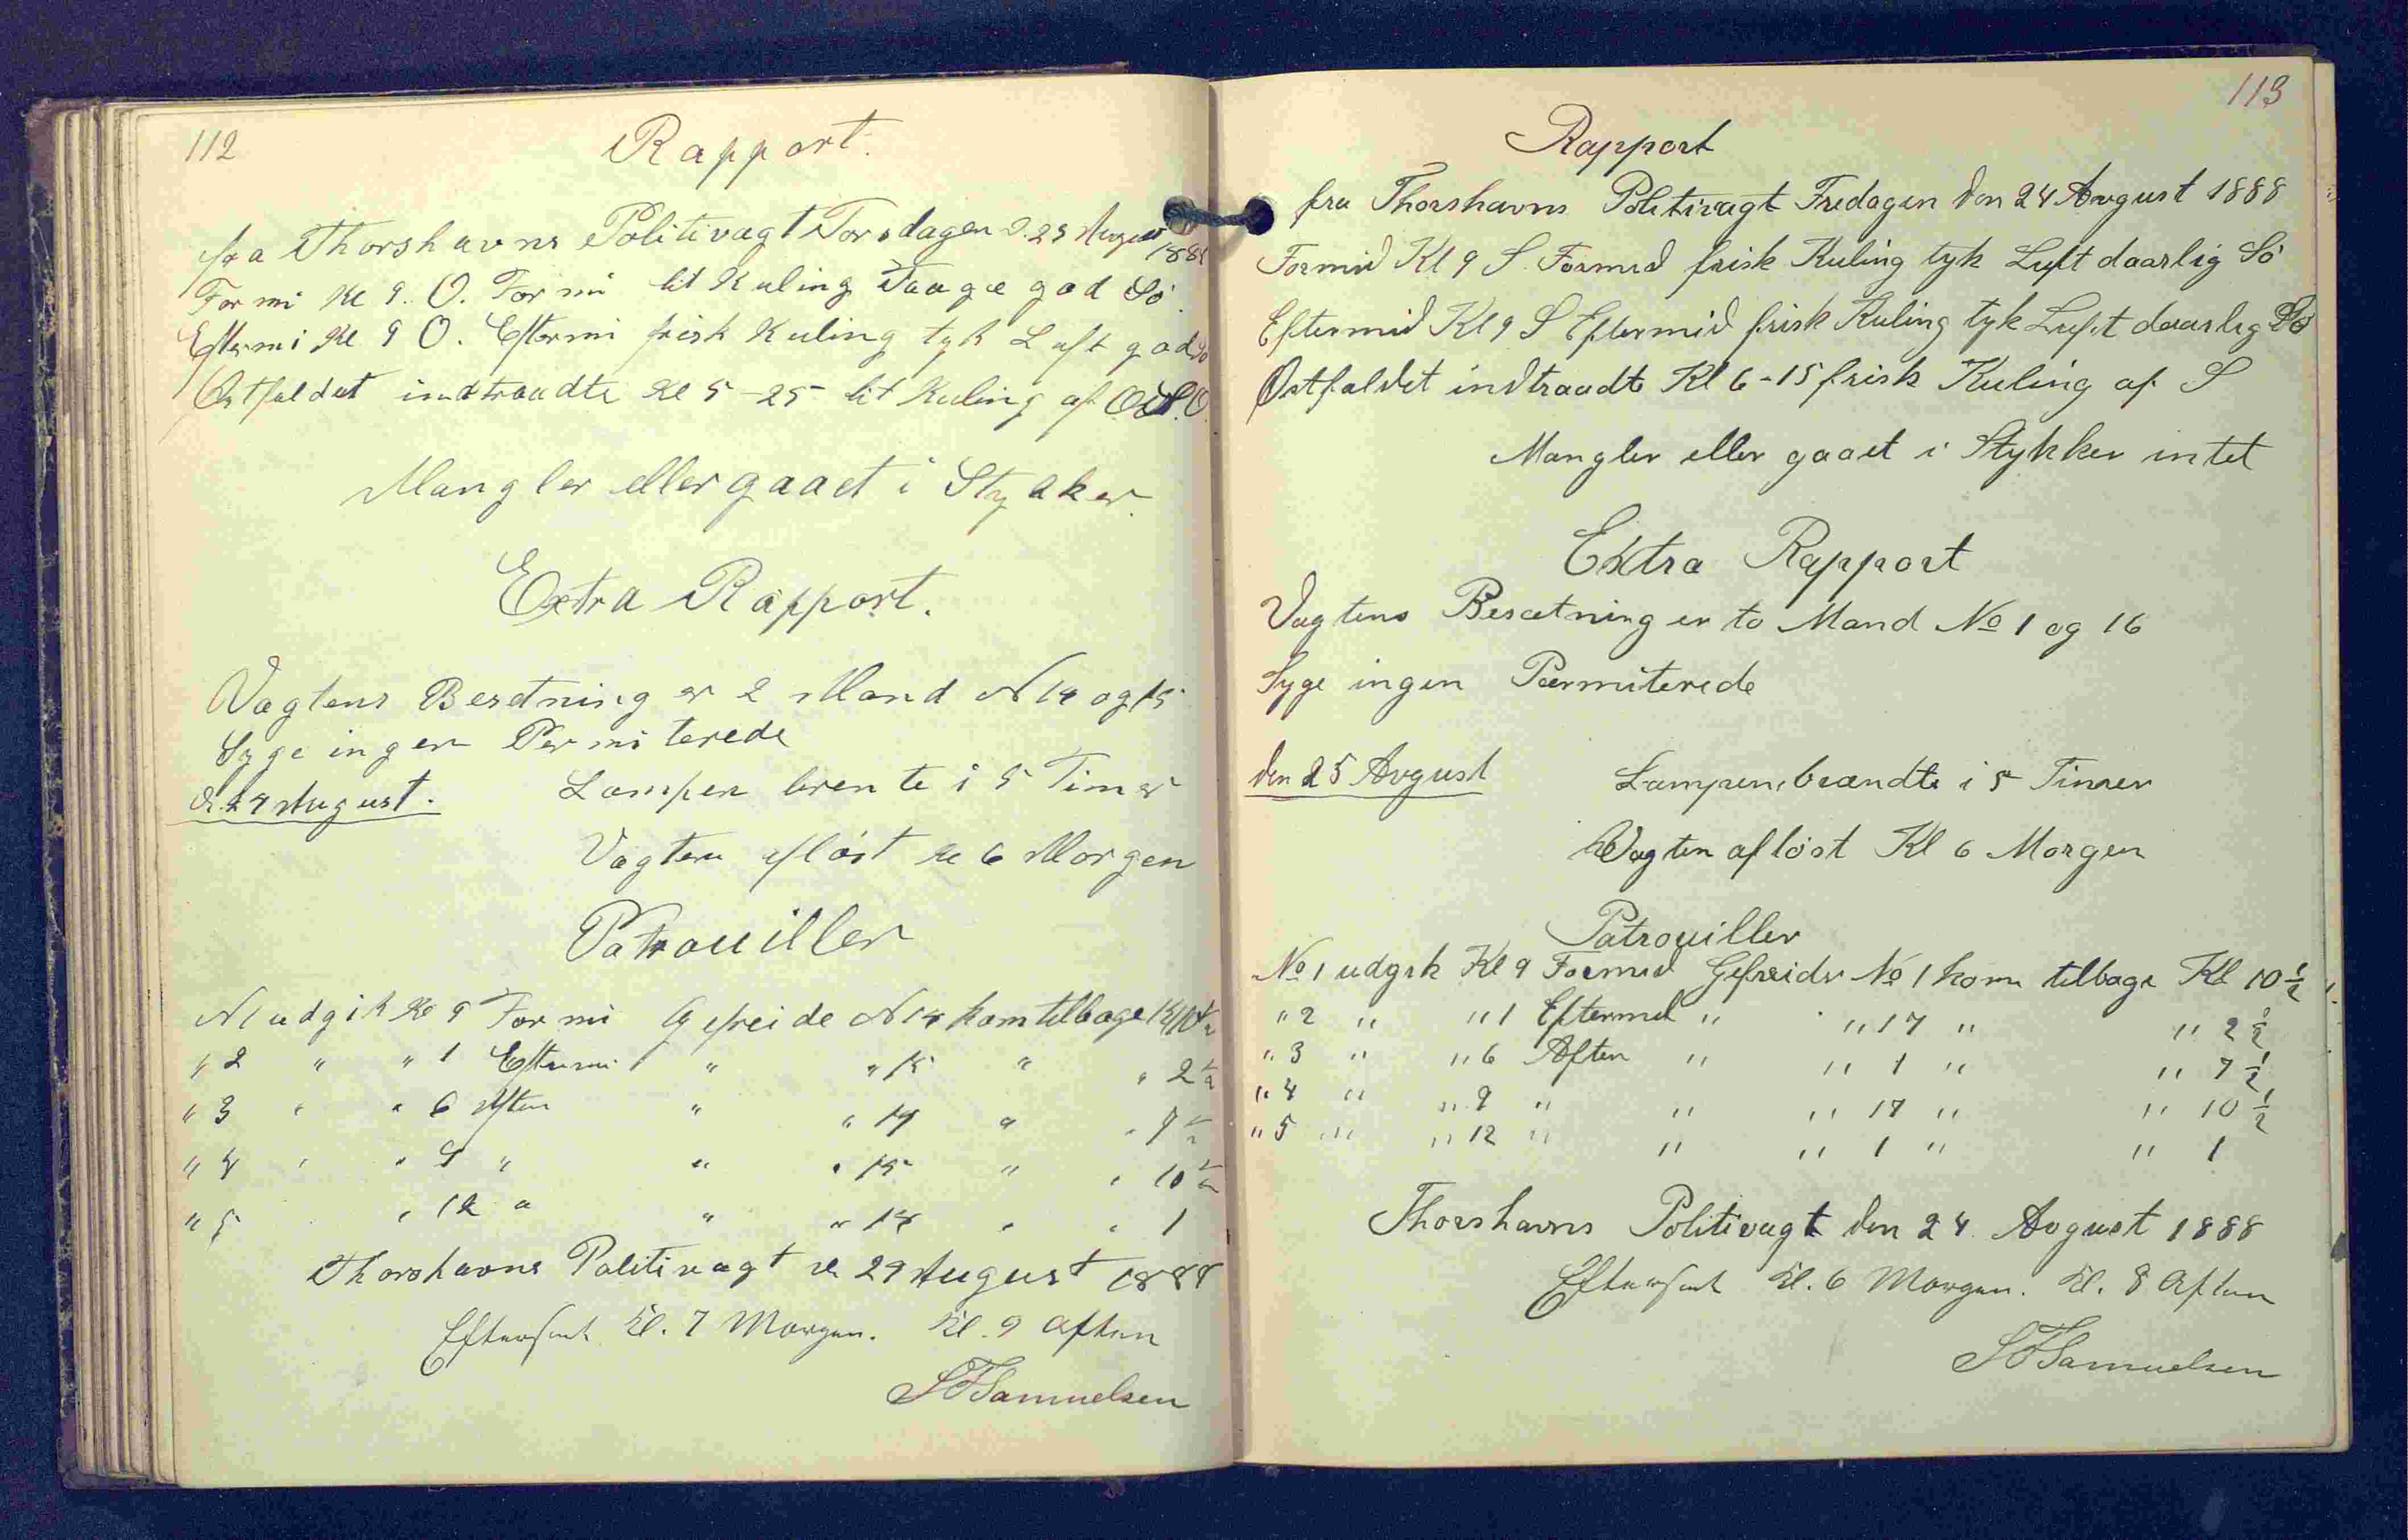 112
Rapport.
fra Thorshavns Politivagt Torsdagen d. 23 August 1888
Formi Kl 9. O. Formi lit Kuling Taage god Sö
Eftermi Kl 9 O. Eftermi frisk Kuling tyk Luft god Sö
Østfaldet indtraadte Kl 5-25 lit Kuling af
Mangler eller gaaet i Stykker.
Extra Rapport.
Vagtens Besetning er 2 Mand N 14 og 15
Syge ingen Permiterede
d. 24 August. Lampen brente i 5 Timer
Vagten afløst Kl 6 Morgen
Patrouiller
N 1 udgik Kl 9 Formi Gefreide N 14 kom tilbage Kl 10 1/2
" 2 " " 1 Eftermi " " 15 " " 2 1/2
" 3 " " 6 Aften " " 14 " " 7 1/2
" 4 " " 9 " " " 15 " " 10 1/2
" 5 " 12 " " " 14 " " 1
Thorshavns Politivagt d. 24 August 1888
Efterseet Kl. 7 Morgen. Kl. 9 Aften
SFSamuelsen
113
Rapport
fra Thorshavns Politivagt Fredagen den 24 Avgust 1888
Formid Kl 9 S. Formid frisk Kuling tyk Luft daarlig Sö
Eftermid Kl 9 S Eftermid frisk Kuling tyk Luft daarlig Sö
Østfaldet indtraadte Kl 6-15 frisk Kuling af S
Mangler eller gaaet i Stykker intet
Extra Rapport
Vagtens Besætning er to Mand No 1 og 16
Syge ingen Permiterede
den 25 Avgust Lampen brændte i 5 Timer
Vagten afløst Kl 6 Morgen
Patrouiller
No 1 udgik Kl 9 Formid Gefreider No 1 kom tilbage Kl 10 1/2
" 2 " " 1 Eftermid " " 17 " " 2 1/2
" 3 " " 6 Aften " " 1 " " 7 1/2
" 4 " " 9 " " " 17 " " 10 1/2
" 5 " " 12 " " " 1 " " 1
Thorshavns Politivagt den 24 Avgust 1888
Efterseet Kl. 6 Morgen. Kl. 8 Aften
SFSamuelsen